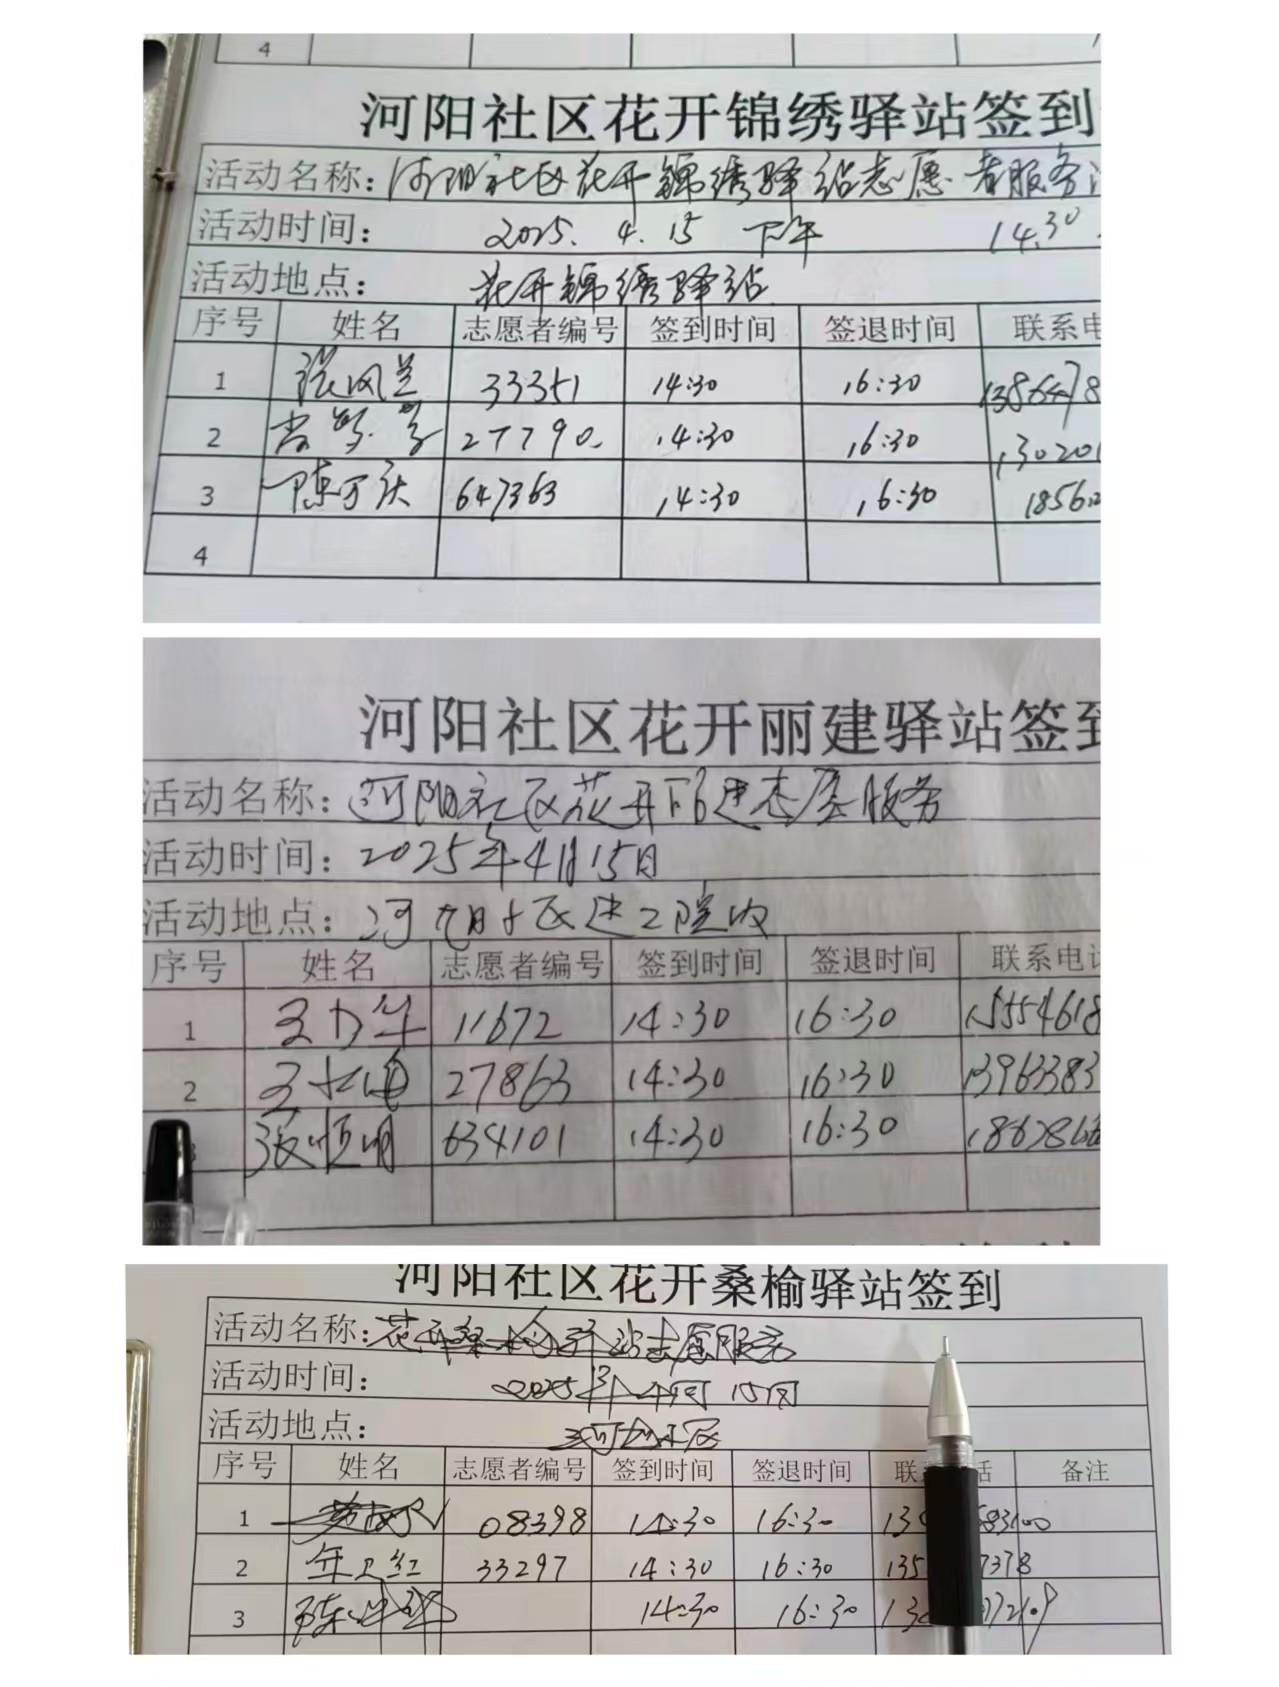 4
河阳社区花开锦绣驿站签到
活动名称：河阳社区花开锦绣驿站志愿者服务
活动时间： 2025. 4. 15 下午 14:30
活动地点： 花开锦绣驿站
序号 姓名 志愿者编号 签到时间 签退时间 联系电
1 张凤兰 33351 14:30 16:30 1386478
2 27790 14:30 16:30 130201
3 陈万庆 647363 14:30 16:30 1856
4
河阳社区花开丽建驿站签到
活动名称：河阳社区花开丽建志愿服务
活动时间：2025年4月15日
活动地点：河阳小区建工院内
序号 姓名 志愿者编号 签到时间 签退时间 联系电话
1 11672 14:30 16:30 15554618
2 27863 14:30 16:30 13963383
张恒明 634101 14:30 16:30
河阳社区花开桑榆驿站签到
活动名称：花开桑榆驿站志愿服务
活动时间： 2025年4月15日
活动地点： 河阳小区
序号 姓名 志愿者编号 签到时间 签退时间 联 话 备注
1 08398 14:30 16:30 13 83100
2 年卫红 33297 14:30 16:30 135 7378
3 14:30 16:30 13 72109